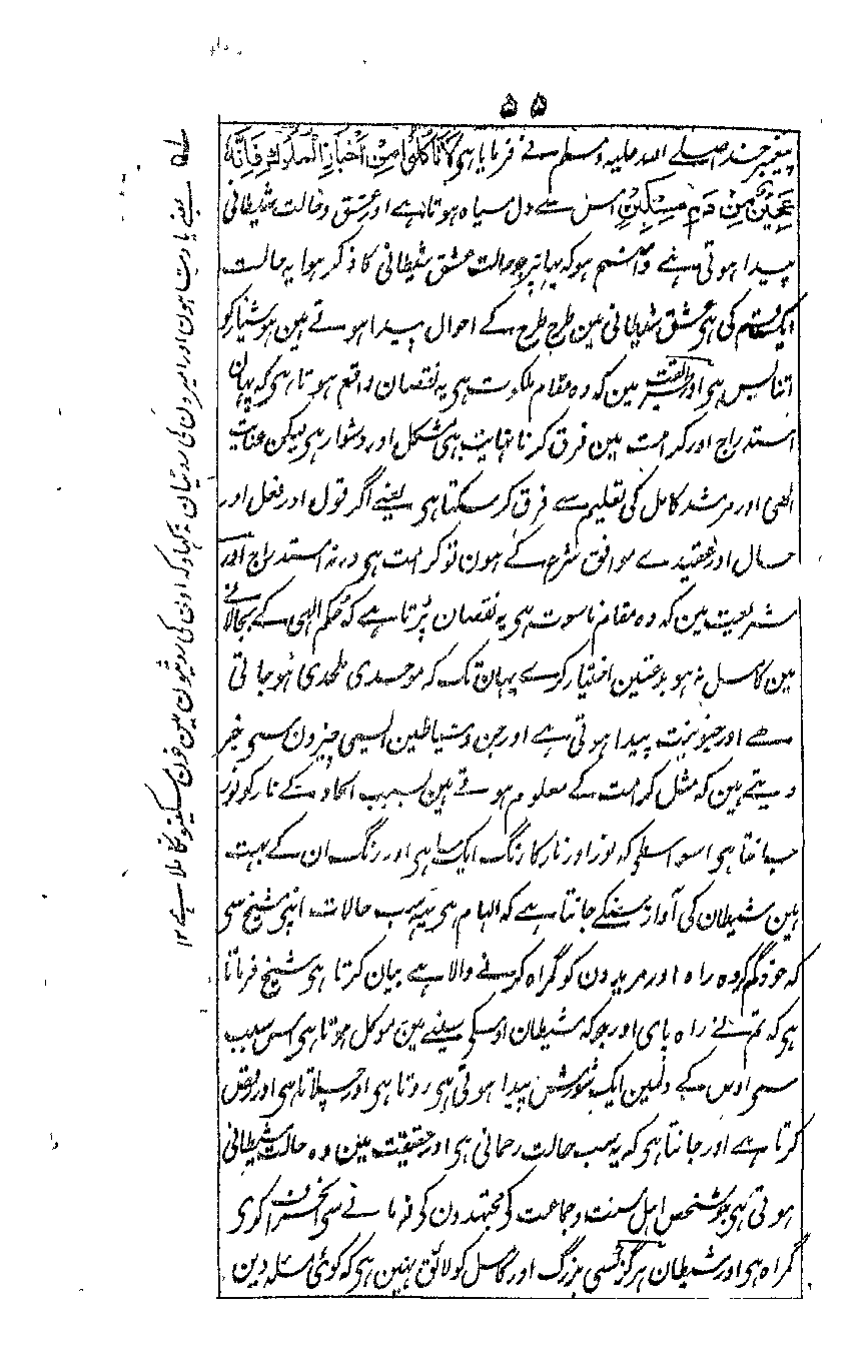 ۵۵
پیغمبر خدا صلے اللہ علیہ وسلم نے فرمایا ہی لا تاکلوا من اخباز الملوک فانہ
عجین من دم مسکین اس سے دل سیاہ ہوتا ہے اور عشق و حالت شیطانی
پیدا ہوتی ہے وا ضح ہو کہ یہانپر جو حالت عشق شیطانی کا ذکر ہوا یہ حالت
ایک قسم کی ہی عشق شیطانی مین طرح طرح کے احوال پیدا ہوتے ہین ہوشیار کو
اتنا بس ہی اور طریقت مین کہ وہ مقام ملکوت ہی یہ نقصان واقع ہوتا ہی کہ یہان
استدراج اور کرامت مین فرق کرنا نہایت ہی مشکل اور دشوار ہی لیکن عنایت
الٰہی اور مرشد کامل کی تعلیم سے فرق کر سکتا ہی یعنے اگر قول اور فعل اور
حال اور عقیدے موافق شرع کے ہون تو کرامت ہی ورنہ استدراج اور
شریعت مین کہ وہ مقام ناسوت ہی یہ نقصان پڑتا ہے کہ حکم الٰہی کے بجالانے
مین کامل نہ ہو بدعتین اختیار کرے یہان تک کہ موحدی ملحدی ہو جاتی
ہے اور پیدا ہوتی ہے اور جن و شیاطین ایسی چیزون سی خبر
دیتے ہین کہ مثل کرامت کے معلوم ہوتے ہین بسبب الحاد کے نار کو نور
جانتا ہی اسواسطی کہ نور اور نار کا رنگ ایک سا ہی اور رنگ ان کے بہت
ہین شیطان کی آواز سنکے جانتا ہے کہ الہام ہی یہ سب حالات اپنی شیخ سی
کہ خود گم کردہ راہ اور مریدون کو گمراہ کرنے والا ہے بیان کرتا ہی شیخ فرماتا
ہی کہ تم نے راہ پای اور جو کہ شیطان اوسکی سینے مین موکل ہوتا ہی اس سبب
سی اوس کے دلمین ایک شورش پیدا ہوتی ہی روتا ہی اور چلاتا ہی اور رقص
کرتا ہے اور جانتا ہی کہ یہ سب حالت رحمانی ہی اور حقیقت مین وہ حالت شیطانی
ہوتی ہی جو شخص اہل سنت و جماعت کی مجتہدون کی فرمانے سی انحراف کری
گمراہ ہی اور شیطان ہرگز کسی بزرگ اور کامل کو لائق نہین ہی کہ کوئی مسئلہ دین
یعنے بادشاہون اور امیرون کی روٹیان نہ کہاؤ کہ اونکی روٹیون مین خون مسکینو نکا ملا ہے ۱۲